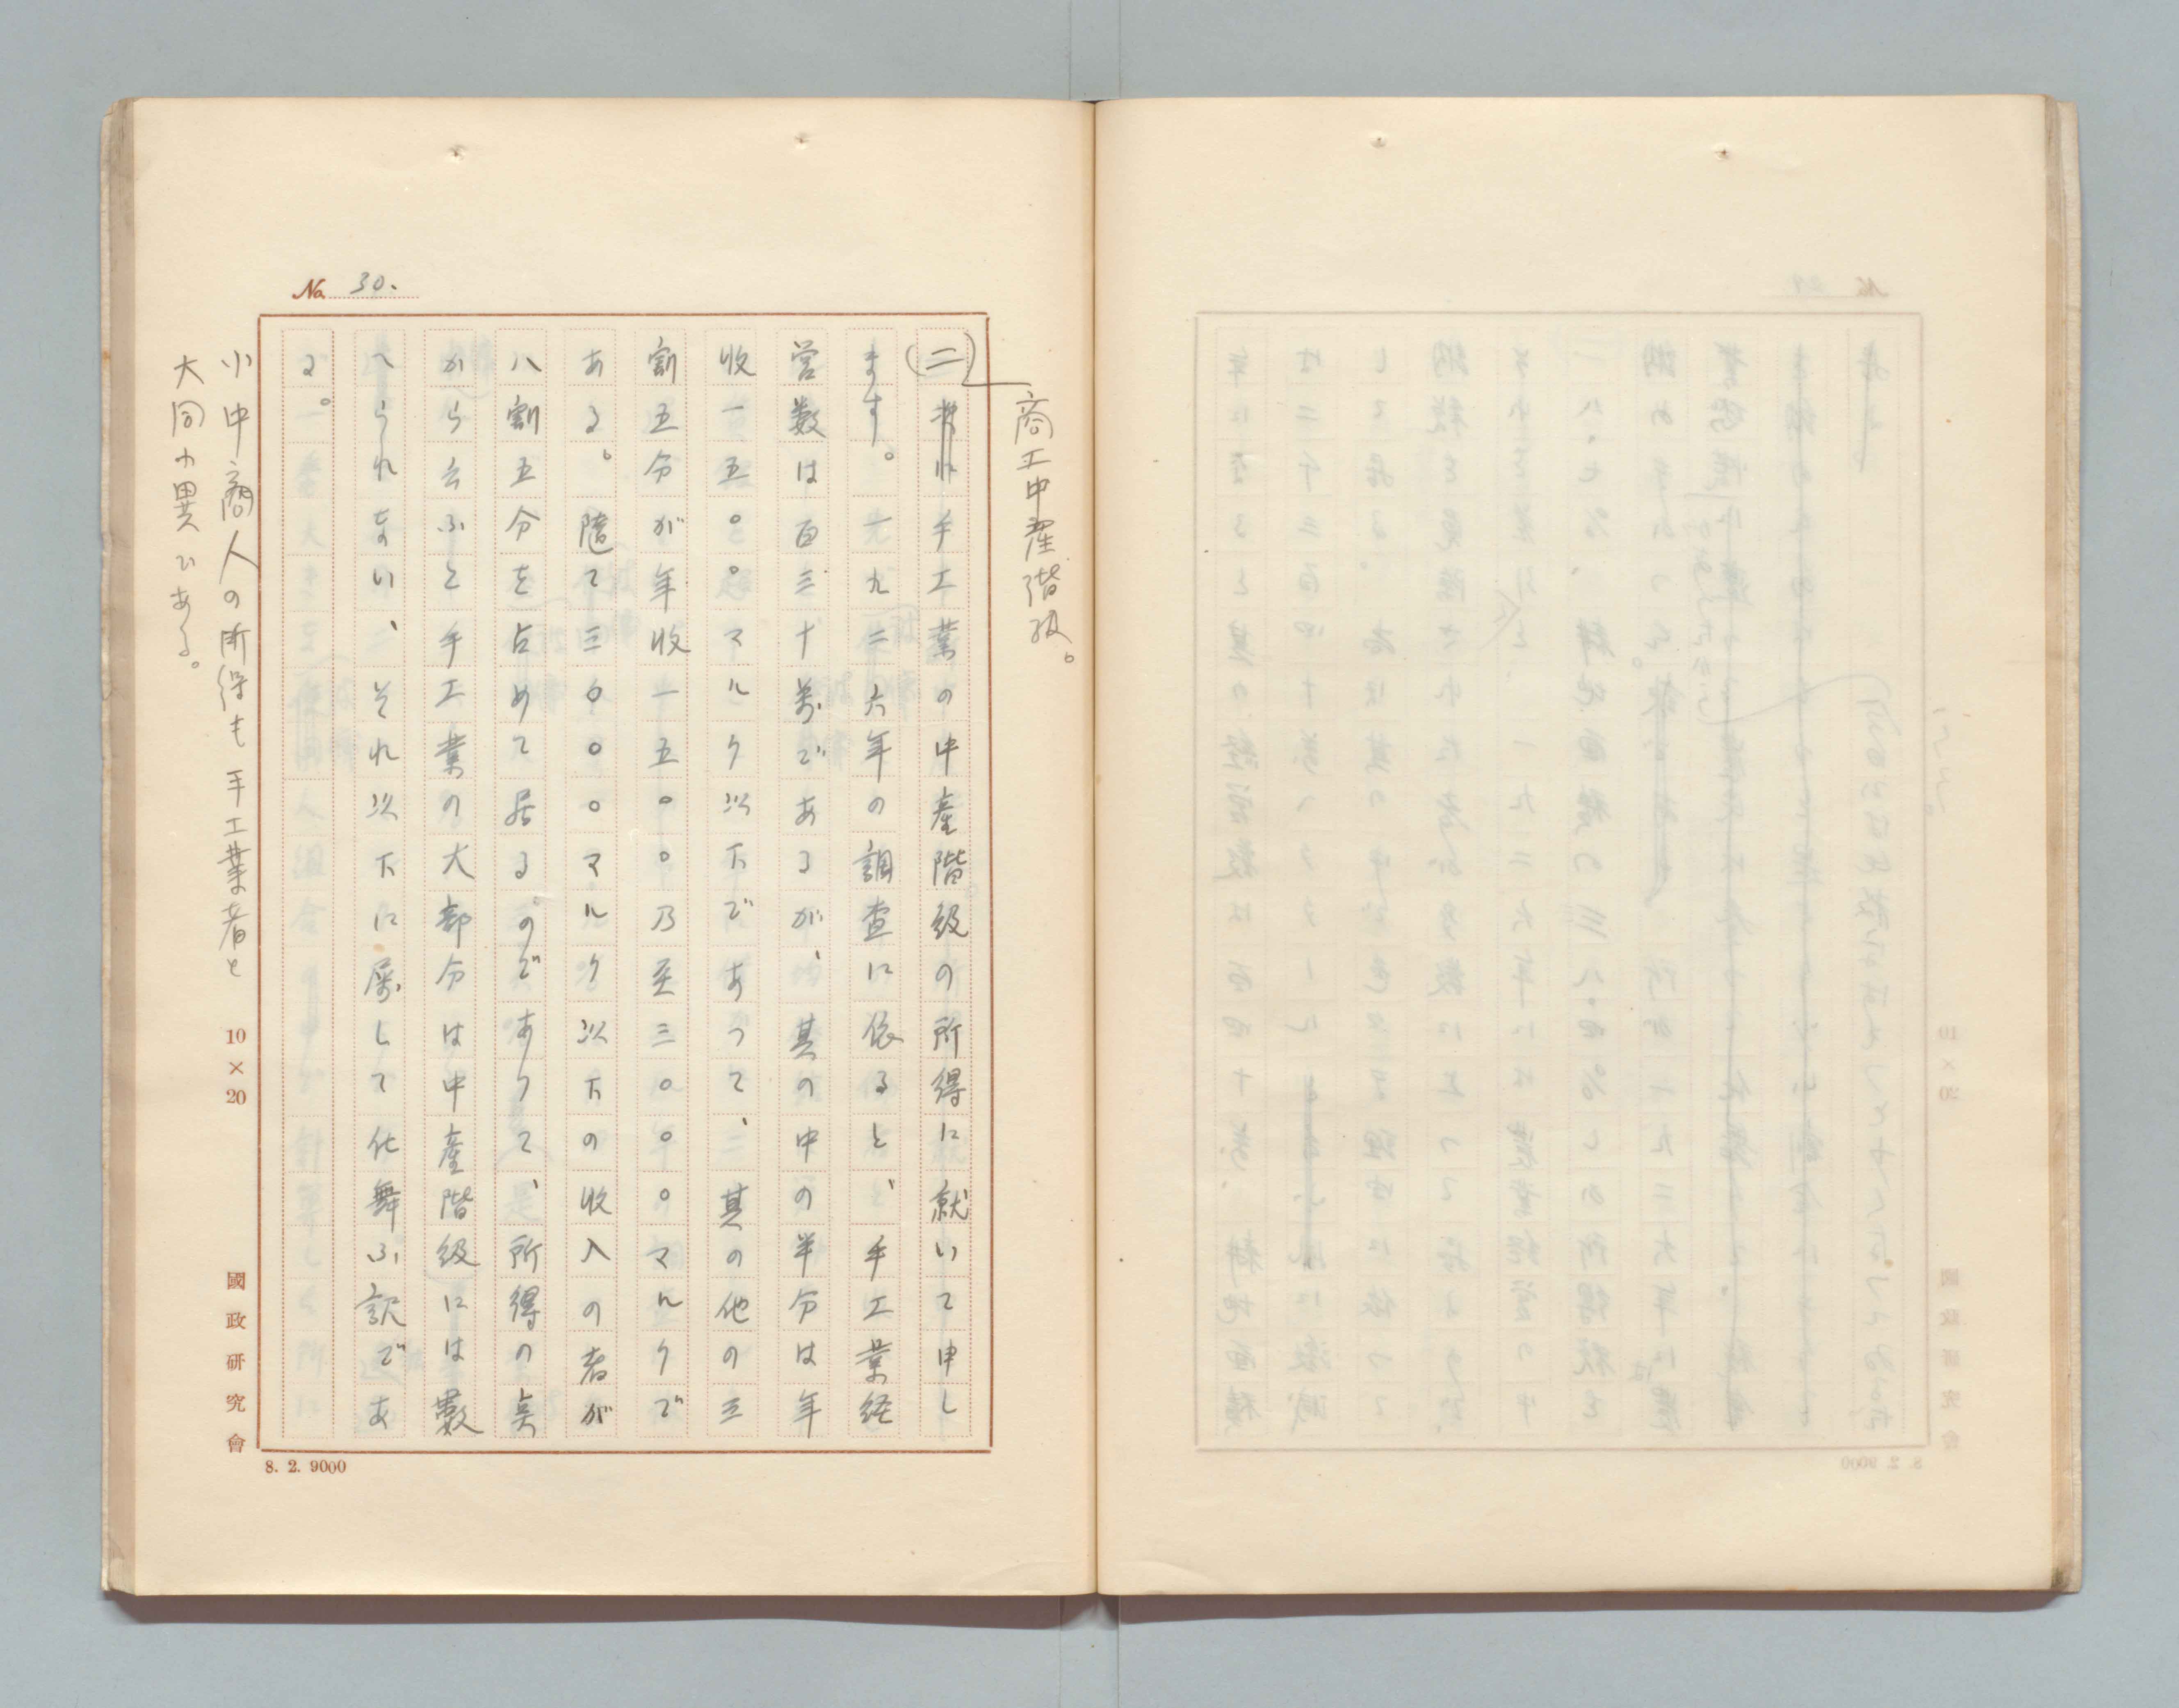 No. 30.
商工中産階級。
(二) 手工業の中産階級の所得に就いて申し
ます。一九二六年の調査に依ると、手工業経
営数は百三十萬であるが、其の中の半分は年
收一五〇〇マルク以下であつて、其の他の三
割五分が年收一五〇〇乃至三〇〇〇マルクで
ある。随て三〇〇〇マルク以下の收入の者が
八割五分を占めて居る。のでありて、所得の点
から云ふと手工業の大部分は中産階級には数
へられない、それ以下に属して仕舞ふ訳であ
る。
小中商人の所得も手工業者と
大同小異である。
10×20
國政研究會
8. 2. 9000